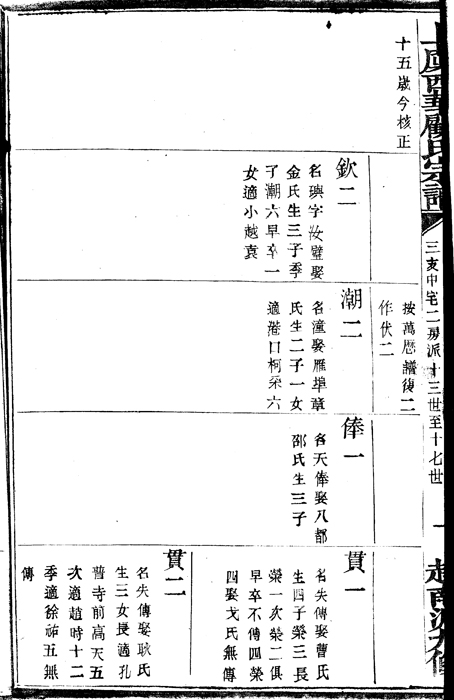 上虞西華顧氏宗譜
三支中宅二房派十三世至十七世
一
十五歲今核正
欽二
名璵字汝璧娶
金氏生三子季
子潮六早卒一
女適小越袁
按萬曆譜復二
作伏二
潮二
名潼娶雁埠章
氏生二子一女
適港口柯采六
俸一
名天俸娶八都
邵氏生三子
貫一
名失傳娶曹氏
生四子榮三長
榮一次榮二俱
早卒不傳四榮
四娶戈氏無傳
貫二
名失傳娶耿氏
生三女長適孔
普寺前高天五
次適趙時十二
季適徐祐五無
傳